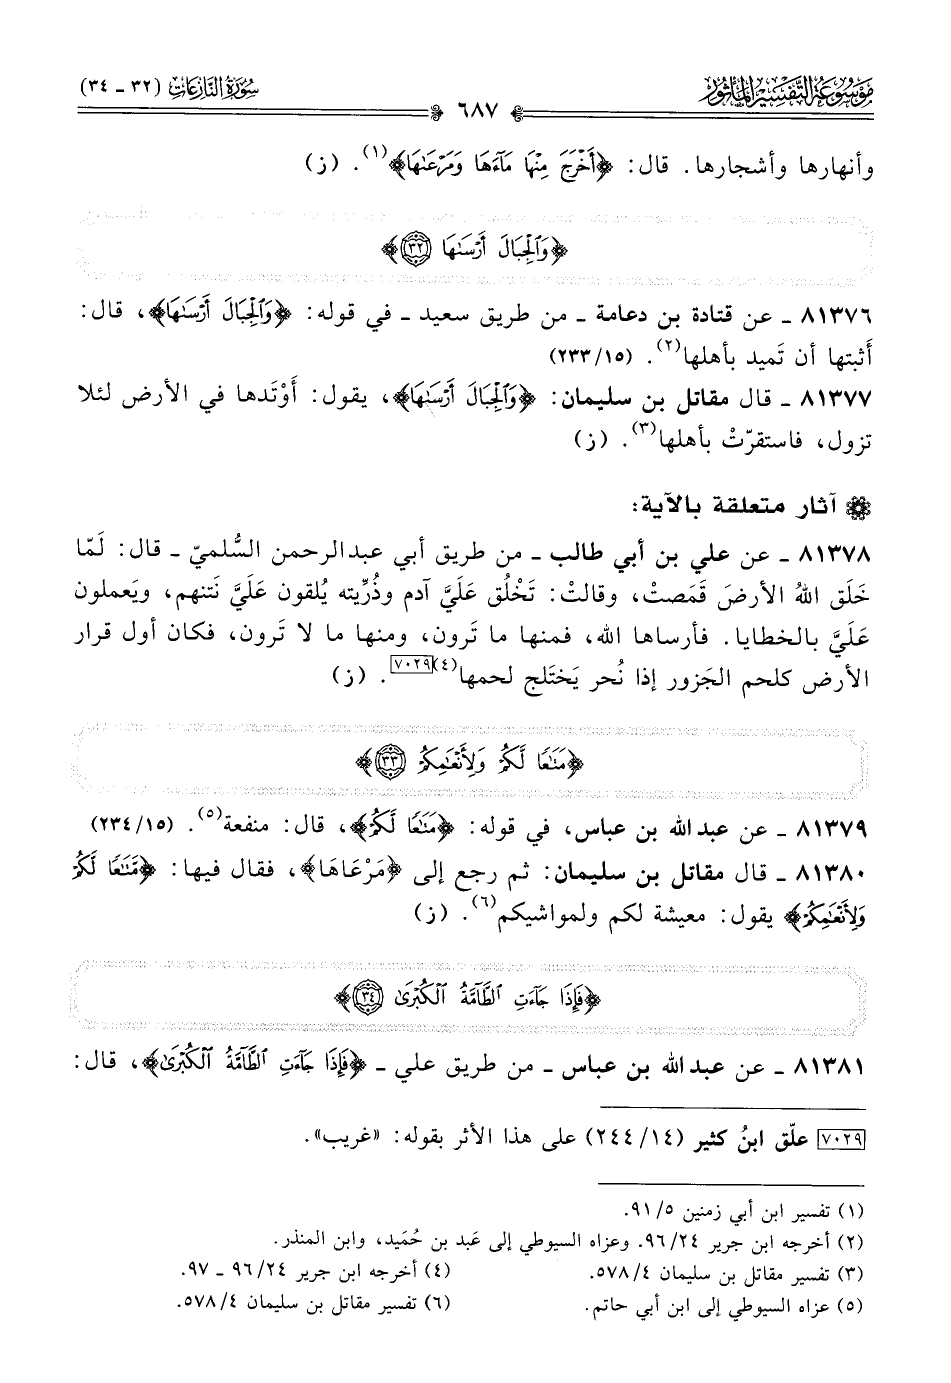 موسوعة التفسير المأثور
سورة النازعات (٣٢ - ٣٤)
٦٨٧
وأنهارها وأشجارها. قال: ﴿أَخْرَجَ مِنْهَا مَآءَهَا وَمَرْعَىٰهَا﴾(١). (ز)
﴿وَٱلْجِبَالَ أَرْسَىٰهَا ٣٢﴾
٨١٣٧٦ - عن قتادة بن دعامة - من طريق سعيد - في قوله: ﴿وَٱلْجِبَالَ أَرْسَىٰهَا﴾، قال:
أثبتها أن تَميد بأهلها(٢). (١٥/٢٣٣)
٨١٣٧٧ - قال مقاتل بن سليمان: ﴿وَٱلْجِبَالَ أَرْسَىٰهَا﴾، يقول: أوْتَدها في الأرض لئلا
تزول، فاستقرّتْ بأهلها(٣). (ز)
آثار متعلقة بالآية:
٨١٣٧٨ - عن علي بن أبي طالب - من طريق أبي عبدالرحمن السُّلميّ - قال: لَمّا
خَلَق اللهُ الأرضَ قَمَصتْ، وقالتْ: تَخْلُق عَلَيَّ آدم وذُرِّيته يُلقون عَلَيَّ نَتنهم، ويَعملون
عَلَيَّ بالخطايا. فأرساها الله، فمنها ما تَرون، ومنها ما لا تَرون، فكان أول قرار
الأرض كلحم الجَزور إذا نُحر يَختَلج لحمها(٤)[٧٠٢٩]. (ز)
﴿مَتَـٰعًا لَّكُمْ وَلِأَنْعَـٰمِكُمْ ٣٣﴾
٨١٣٧٩ - عن عبدالله بن عباس، في قوله: ﴿مَتَـٰعًا لَّكُمْ﴾، قال: منفعة(٥). (١٥/٢٣٤)
٨١٣٨٠ - قال مقاتل بن سليمان: ثم رجع إلى ﴿مَرْعَاهَا﴾، فقال فيها: ﴿مَتَـٰعًا لَّكُمْ
وَلِأَنْعَـٰمِكُمْ﴾ يقول: معيشة لكم ولمواشيكم(٦). (ز)
﴿فَإِذَا جَآءَتِ ٱلطَّآمَّةُ ٱلْكُبْرَىٰ ٣٤﴾
٨١٣٨١ - عن عبدالله بن عباس - من طريق علي - ﴿فَإِذَا جَآءَتِ ٱلطَّآمَّةُ ٱلْكُبْرَىٰ﴾، قال:
[٧٠٢٩] علّق ابنُ كثير (١٤/٢٤٤) على هذا الأثر بقوله: «غريب».
(١) تفسير ابن أبي زمنين ٥/٩١.
(٢) أخرجه ابن جرير ٢٤/٩٦. وعزاه السيوطي إلى عَبد بن حُمَيد، وابن المنذر.
(٣) تفسير مقاتل بن سليمان ٤/٥٧٨.
(٤) أخرجه ابن جرير ٢٤/٩٦ - ٩٧.
(٥) عزاه السيوطي إلى ابن أبي حاتم.
(٦) تفسير مقاتل بن سليمان ٤/٥٧٨.